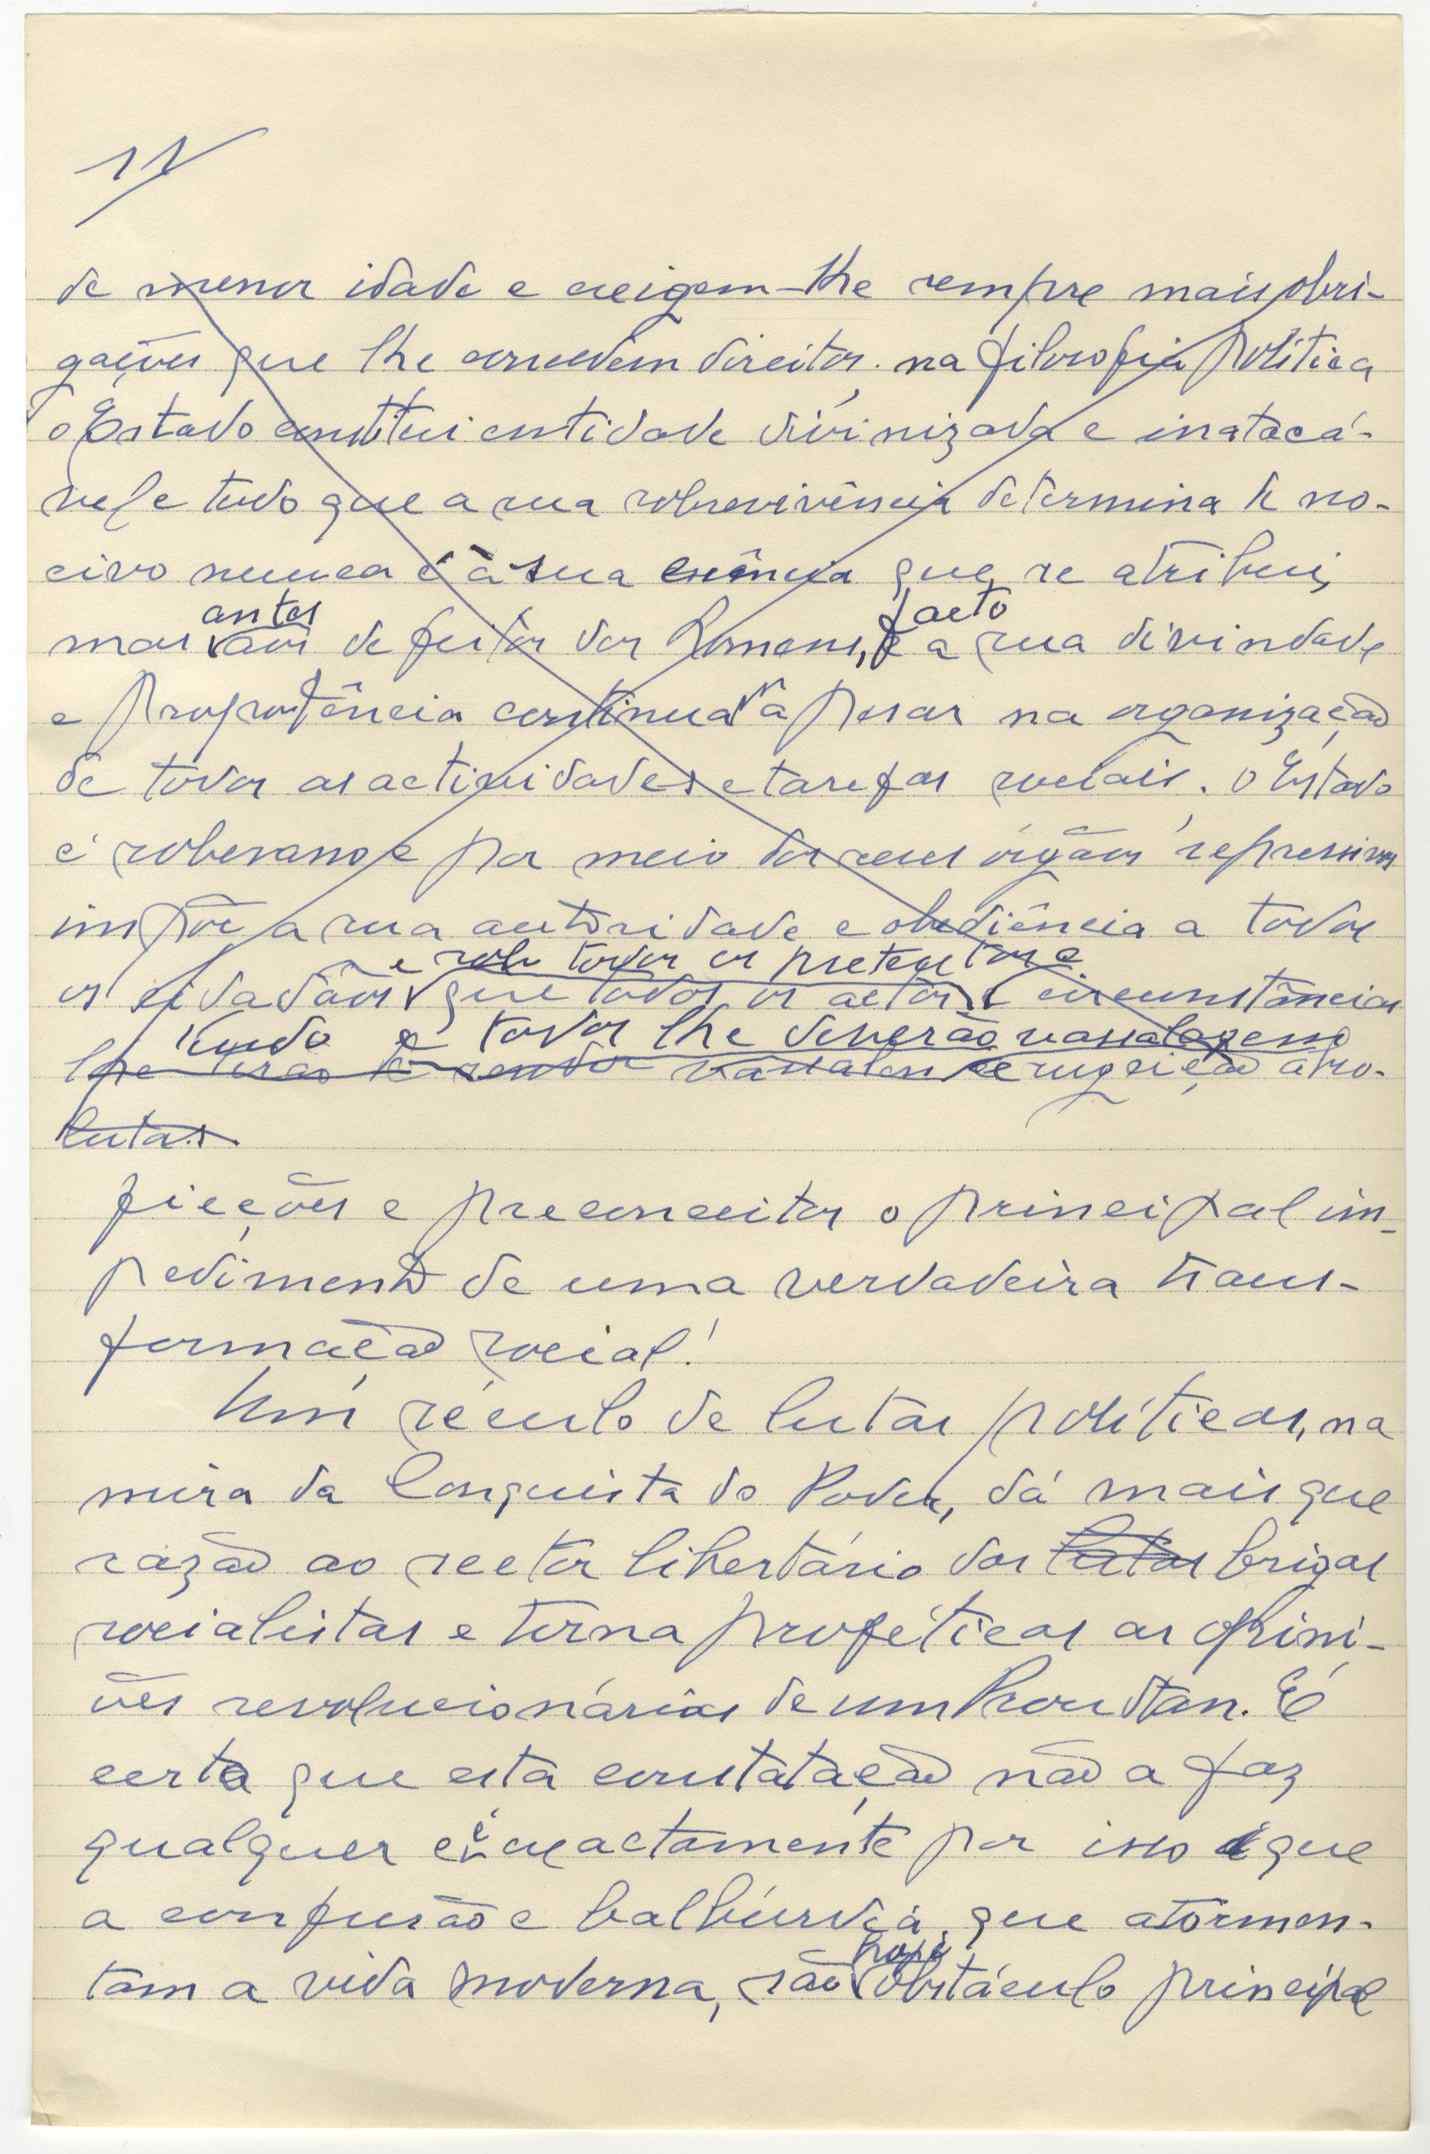 11
de menor idade e exigem-lhe sempre mais obri-
gações que lhe concedem direitos. na filosofia política
o Estado constitui entidade divinizada e inatacá-
vel e tudo que a sua sobrevivência determina de no-
civo nunca é à sua essência que se atribui,
antes facto
mas aos defeitos dos homens, e a sua divindade
e prepotência continua a pesar na organização
de todas as actividades e tarefas sociais. O Estado
é soberano e por meio dos seus órgãos repressivos
impõe a sua autoridade e obediência a todos
e sob todos os pretextos e
os cidadãos que todos os actos e circunstâncias
tudo e todos lhe deverão vassalagem
lhe terão de render e sugeição abso-
lutas.
ficções e preconceitos o principal im-
pedimento de uma verdadeira trans-
formação social!
Um século de lutas políticas, na
mira da Conquista do Poder, dá mais que
razão ao sector libertário das lutas brigas
socialistas e torna proféticas as opini-
ões revolucionárias de um Proudhan. É
certo que esta constatação não a faz
qualquer e é exactamente por isso que
a confusão e balbúrdia, que atormen-
hoje
tam a vida moderna, são obstáculo principal